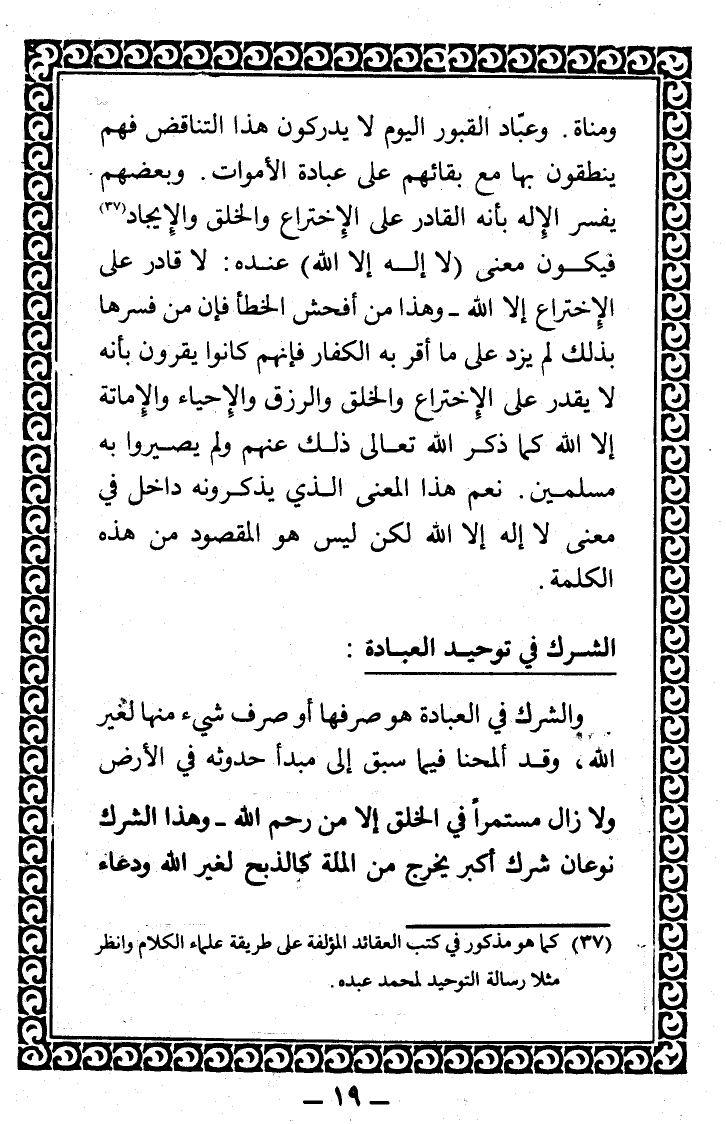 ومناة. وعبّاد القبور اليوم لا يدركون هذا التناقض فهم
ينطقون بها مع بقائهم على عبادة الأموات. وبعضهم
يفسر الإله بأنه القادر على الإختراع والخلق والإيجاد(٣٧)
فيكون معنى (لا إله إلا الله) عنده: لا قادر على
الإختراع إلا الله ـ وهذا من أفحش الخطأ فإن من فسرها
بذلك لم يزد على ما أقر به الكفار فإنهم كانوا يقرون بأنه
لا يقدر على الإختراع والخلق والرزق والإحياء والإماتة
إلا الله كما ذكر الله تعالى ذلك عنهم ولم يصيروا به
مسلمين. نعم هذا المعنى الذي يذكرونه داخل في
معنى لا إله إلا الله لكن ليس هو المقصود من هذه
الكلمة.
الشرك في توحيد العبادة :
والشرك في العبادة هو صرفها أو صرف شيء منها لغير
الله، وقد ألمحنا فيما سبق إلى مبدأ حدوثه في الأرض
ولا زال مستمراً في الخلق إلا من رحم الله ـ وهذا الشرك
نوعان شرك أكبر يخرج من الملة كالذبح لغير الله ودعاء
(٣٧) كما هو مذكور في كتب العقائد المؤلفة على طريقة علماء الكلام وانظر
مثلا رسالة التوحيد لمحمد عبده.
ـ ١٩ ـ